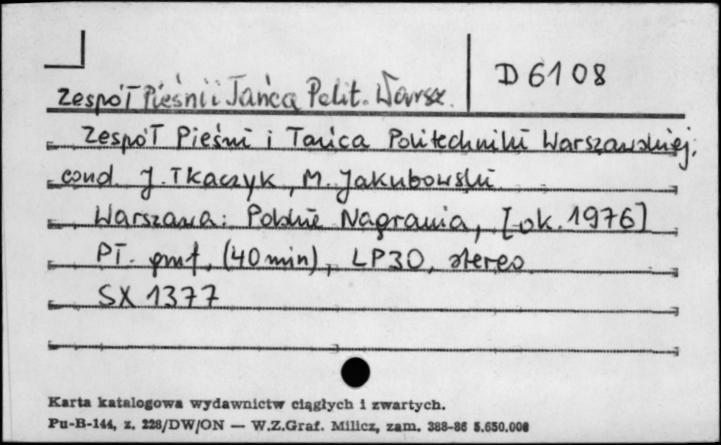 D 6108
Zespół Pieśni i Tańca Polit. Warsz.
Zespół Pieśni i Tańca Politechniki Warszawskiej.
cond. J. Tkaczyk, M. Jakubowski
Warszawa: Polskie Nagrania, [ok. 1976]
Pł. gmf, (40 min), LP30, stereo
SX 1377
Karta katalogowa wydawnictw ciągłych i zwartych.
Pu-B-144, z. 228/DW/ON — W.Z.Graf. Milicz, zam. 388-86 5.650.000